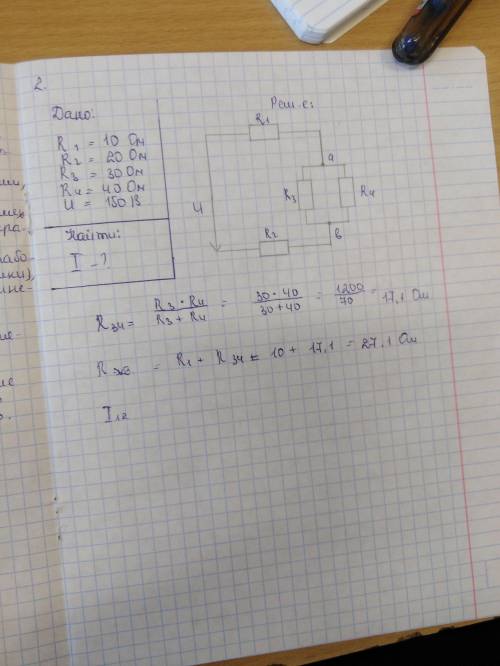 2.
Дано:
R1 = 10 Ом
R2 = 20 Ом
R3 = 30 Ом
R4 = 40 Ом
U = 150 В
Найти:
I - ?
R1
a
R3
R4
U
R2
в
R34 = R3 · R4 / R3 + R4 = 30 · 40 / 30 + 40 = 1200 / 70 = 17,1 Ом
Rэкв = R1 + R34 = 10 + 17,1 = 27,1 Ом
I12